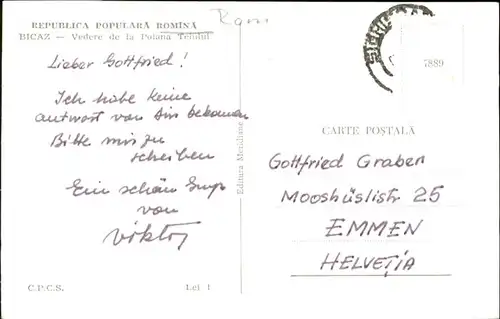 REPUBLICA POPULARĂ ROMÎNĂ
BICAZ — Vedere de la Poiana Teiului
Lieber Gottfried!
Ich habe keine
antwort von Dir bekomen
Bitte mir zu
scheiben
Ein schön
von
Viktor
C.P.C.S.
Lei 1
Editura Meridiane
7889
CARTE POȘTALĂ
Gottfried Graben
Mooshüslistr 25
EMMEN
HELVEȚIA